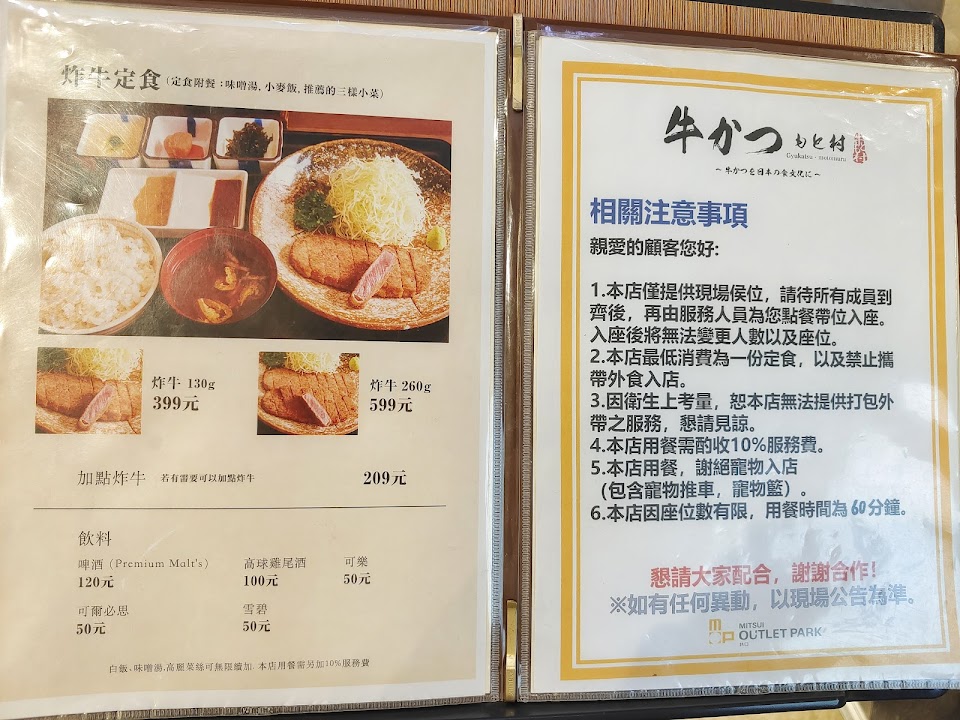 炸牛定食(定食附餐：味噌湯, 小麥飯, 推薦的三樣小菜)
炸牛 130g
399元
炸牛 260g
599元
加點炸牛 若有需要可以加點炸牛 209元
飲料
啤酒(Premium Malt's) 高球雞尾酒 可樂
120元 100元 50元
可爾必思 雪碧
50元 50元
白飯、味噌湯,高麗菜絲可無限續加. 本店用餐需另加10%服務費
牛かつ もと村
Gyukatsu - motomura
～牛かつを日本の食文化に～
相關注意事項
親愛的顧客您好:
1.本店僅提供現場侯位，請待所有成員到
齊後，再由服務人員為您點餐帶位入座。
入座後將無法變更人數以及座位。
2.本店最低消費為一份定食，以及禁止攜
帶外食入店。
3.因衛生上考量，恕本店無法提供打包外
帶之服務，懇請見諒。
4.本店用餐需酌收10%服務費。
5.本店用餐，謝絕寵物入店
（包含寵物推車，寵物籃）。
6.本店因座位數有限，用餐時間為60分鐘。
懇請大家配合，謝謝合作!
※如有任何異動，以現場公告為準。
MOP MITSUI
OUTLET PARK